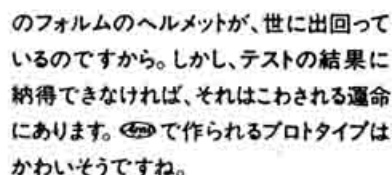 のフォルムのヘルメットが、世に出回って
いるのですから。しかし、テストの結果に
納得できなければ、それはこわされる運命
にあります。で作られるプロトタイプは
かわいそうですね。